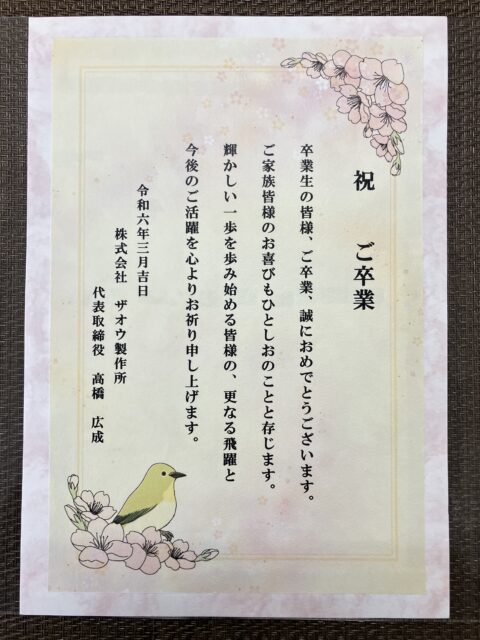 祝 ご卒業
卒業生の皆様、ご卒業、誠におめでとうございます。
ご家族皆様のお喜びもひとしおのことと存じます。
輝かしい一歩を歩み始める皆様の、更なる飛躍と
今後のご活躍を心よりお祈り申し上げます。
令和六年三月吉日
株式会社 ザオウ製作所
代表取締役 高橋 広成